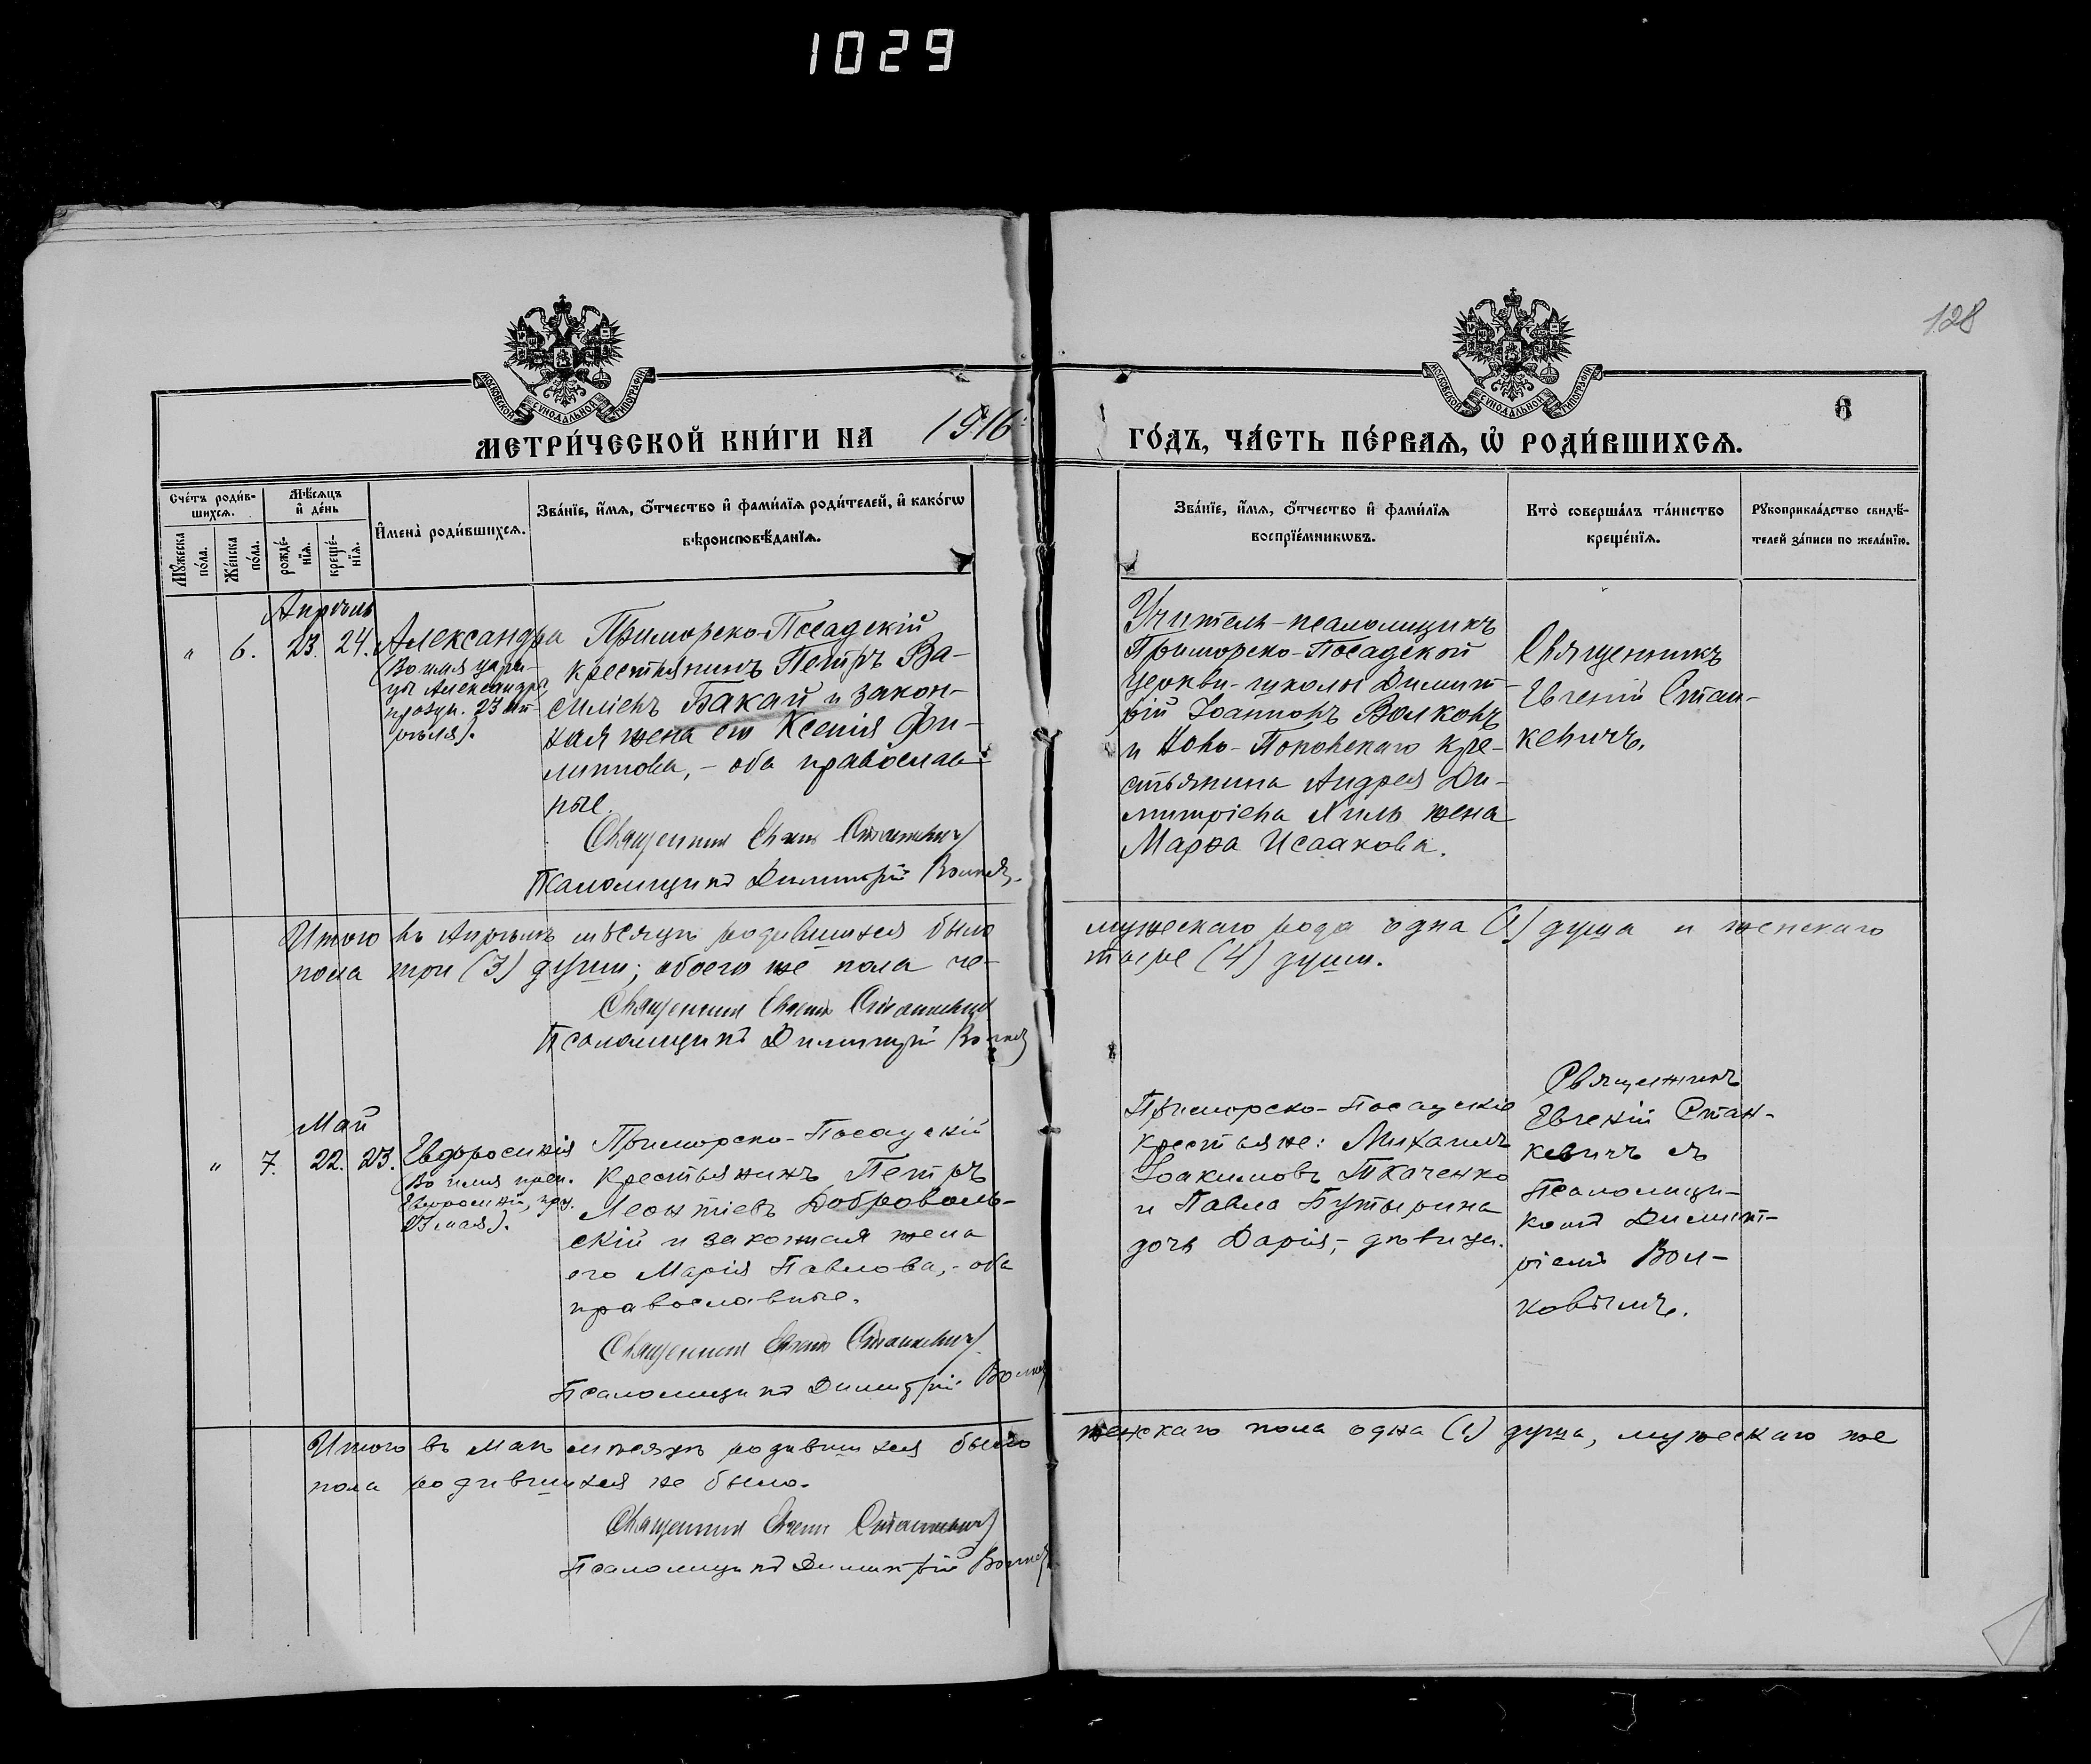 1029
128
МОСКОВСКОЙ СУНОДАЛЬНОЙ ТИПОГРАФІИ
МОСКОВСКОЙ СУНОДАЛЬНОЙ ТИПОГРАФІИ
6
МЕТРИ́ЧЕСКОЙ КНИ́ГИ НА 1916
ГО́ДЪ, ЧА́СТЬ ПЕ́РВАѦ, Ѽ РОДИ́ВШИХСѦ.
Сче́тъ роди́в-
шихсѧ.
Мꙋ́жеска
по́ла.
Же́нска
по́ла.
Мѣ́сѧцъ
и҆ де́нь
рожде́-
нїѧ.
креще́-
нїѧ.
И҆мена̀ роди́вшихсѧ.
Зва́нїе, и҆́мѧ, ѻ҆́тчество и҆ фами́лїѧ роди́телей, и҆ како́гѡ
вѣроисповѣ́данїѧ.
Зва́нїе, и҆́мѧ, ѻ҆́тчество и҆ фами́лїѧ
воспрїе́мникѡвъ.
Кто̀ соверша́лъ та́инство
креще́нїѧ.
Рꙋкоприкла́дство свидѣ́-
телей за́писи по жела́нїю.
Апрѣль
" 6. 23. 24.
Александра
(Во имя цари-
цы Александры,
празды. 23 Ап-
рѣля).
Приморско-Посадскій
крестьянинъ Петръ Ва-
силіевъ Бакай и закон-
ная жена его Ксенія Фи-
липпова, - оба православ-
ные.
Священникъ Евгеній Станкевичъ
Псаломщикъ Димитрій Волковъ.
Учитель-псаломщикъ
Приморско-Посадской
церкви-школы Димит-
рій Іоанновъ Волковъ
и Ново-Поковскаго кре-
стьянина Андрея Ди-
митріева Хиль жена
Марѳа Исаакова.
Священникъ
Евгеній Стан-
кевичъ.
Итого въ Апрѣлѣ мѣсяцѣ родившихся было
мужескаго рода одна (1) душа и женскаго
пола три (3) души; обоего же пола че-
тыре (4) души.
Священникъ Евгеній Станкевичъ
Псаломщикъ Димитрій Волковъ
Май
" 7. 22. 23.
Евфросинія
(Во имя преп.
Евфросиніи, пр.
23 мая).
Приморско-Посадскій
крестьянинъ Петръ
Леонтіевъ Доброволь-
скій и законная жена
его Марія Павлова, - оба
православные.
Священникъ Евгеній Станкевичъ
Псаломщикъ Димитрій Волковъ
Приморско-Посадскіе
крестьяне: Михаилъ
Іоакимовъ Ткаченко
и Павла Бутырина
дочь Дарія, - дѣвица.
Священникъ
Евгеній Стан-
кевичъ съ
Псаломщи-
комъ Димит-
ріемъ Вол-
ковымъ.
Итого въ Маѣ мѣсяцѣ родившихся было
женскаго пола одна (1) душа, мужескаго же
пола родившихся не было.
Священникъ Евгеній Станкевичъ
Псаломщикъ Димитрій Волковъ